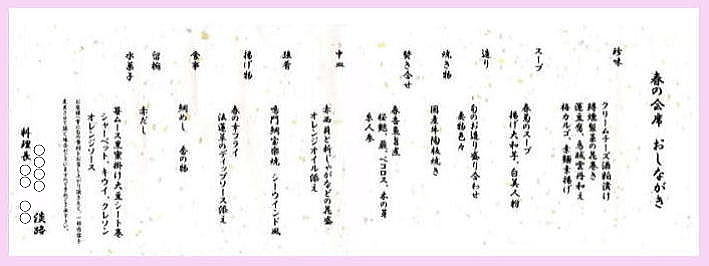 春の会席 おしながき
珍味
クリームチーズ酒粕漬け
鱒燻製菜の花巻き
蓮豆腐、鳥城雲丹和え
梅カルゴ、素麺素揚げ
スープ
春菊のスープ
揚げ大和芋、白美人粉
造り
旬のお造り盛り合わせ
妻物色々
焼き物
国産牛陶板焼き
焚き合せ
春告魚旨煮
桜麩、蕨、ペコロス、木の芽
糸人参
中皿
赤西貝と新じゃがなどの花盛
オレンジオイル添え
強肴
鳴門鯛宝楽焼 シーウインド風
揚げ物
春の幸フライ
法蓮草のディップソース添え
食事
鯛めし 香の物
留椀
赤だし
水菓子
苺ムース黒蜜掛け大豆シート巻
シャーベット、キウイ、クレソン
オレンジソース
料理長 ○○○○ ○○ ○○
淡路